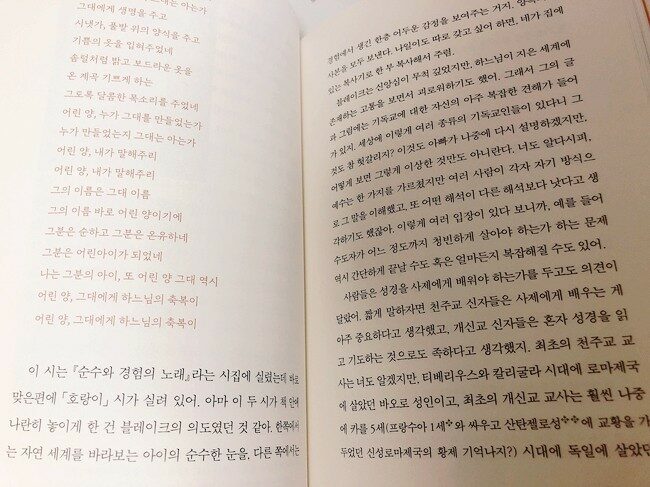 그대에게 생명을 주고
시냇가, 풀밭 위의 양식을 주고
기쁨의 옷을 입혀주었네
솜털처럼 밝고 보드라운 옷을
온 계곡 기쁘게 하는
그토록 달콤한 목소리를 주었네
어린 양, 누가 그대를 만들었는가
누가 만들었는지 그대는 아는가
어린 양, 내가 말해주리
어린 양, 내가 말해주리
그의 이름은 그대 이름
그의 이름 바로 어린 양이기에
그분은 순하고 그분은 온유하네
그분은 어린아이가 되었네
나는 그분의 아이, 또 어린 양 그대 역시
어린 양, 그대에게 하느님의 축복이
어린 양, 그대에게 하느님의 축복이
이 시는 『순수와 경험의 노래』라는 시집에 실렸는데 바로
맞은편에 「호랑이」 시가 실려 있어. 아마 이 두 시가 책 안에
나란히 놓이게 한 건 블레이크의 의도였던 것 같아. 한쪽에서
는 자연 세계를 바라보는 아이의 순수한 눈을, 다른 쪽에서는
경험에서 생긴 한층 어두운 감정을 보여주는 거지.
사본을 모두 보낸다. 나일이도 따로 갖고 싶어 하면, 내가 집에
있는 복사기로 한 부 복사해서 주렴.
블레이크는 신앙심이 무척 깊었지만, 하느님이 지은 세계에
존재하는 고통을 보면서 괴로워하기도 했어. 그래서 그의 글
과 그림에는 기독교에 대한 자신의 아주 복잡한 견해가 들어
가 있지. 세상에 이렇게 여러 종류의 기독교인들이 있다니 그
것도 참 헷갈리지? 이것도 아빠가 나중에 다시 설명하겠지만,
어떻게 보면 그렇게 이상한 것만도 아니란다. 너도 알다시피,
예수는 한 가지를 가르쳤지만 여러 사람이 각자 자기 방식으
로 그 말을 이해했고, 또 어떤 해석이 다른 해석보다 낫다고 생
각하기도 했잖아. 이렇게 여러 입장이 있다 보니까, 예를 들어
수도자가 어느 정도까지 청빈하게 살아야 하는가 하는 문제
역시 간단하게 끝날 수도 혹은 얼마든지 복잡해질 수도 있어.
사람들은 성경을 사제에게 배워야 하는가를 두고도 의견이
달랐어. 짧게 말하자면 천주교 신자들은 사제에게 배우는 게
아주 중요하다고 생각했고, 개신교 신자들은 혼자 성경을 읽
고 기도하는 것으로도 족하다고 생각했지. 최초의 천주교 교
사는 너도 알겠지만, 티베리우스와 칼리굴라 시대에 로마제국
에 살았던 바오로 성인이고, 최초의 개신교 교사는 훨씬 나중
에 카를 5세(프랑수아 1세❖와 싸우고 산탄젤로성❖❖에 교황을 가
두었던 신성로마제국의 황제 기억나지?) 시대에 독일에 살았던